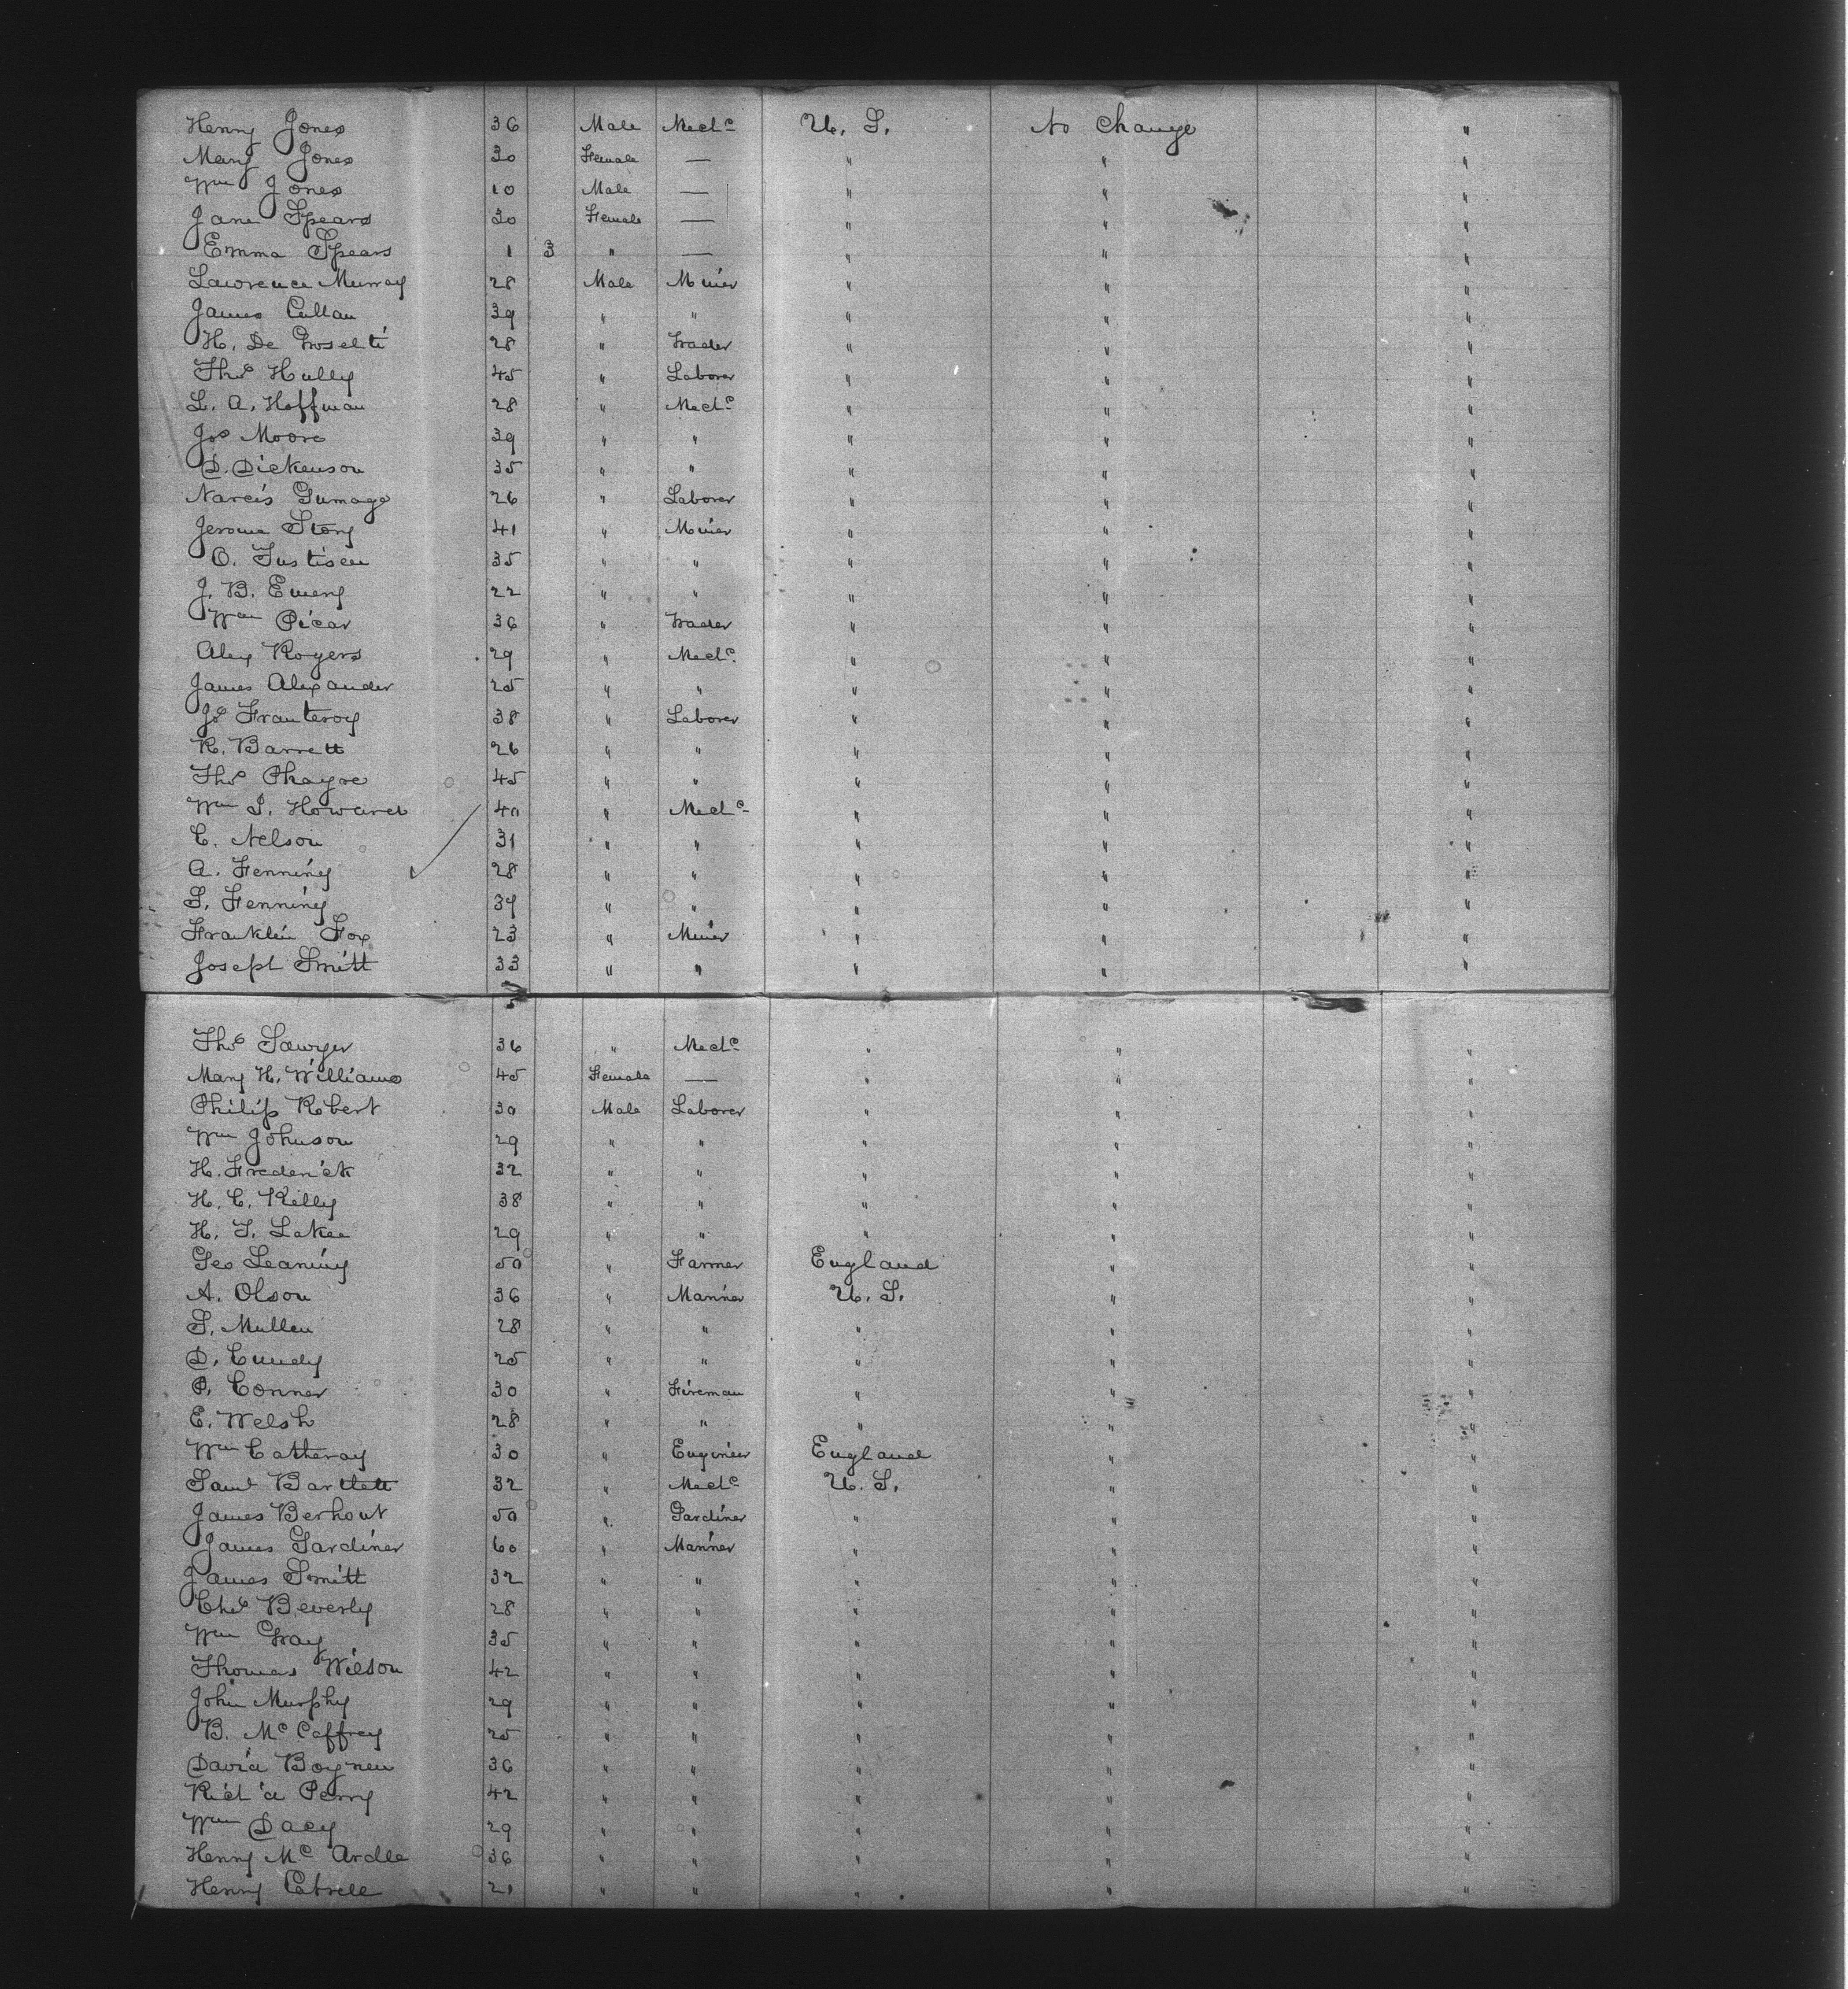 Henry Jones 36 Male Mechc U. S. No Change "
Mary Jones 30 Female — " " "
Wm Jones 10 Male — " " "
Jane Spears 30 Female — " " "
Emma Spears 1 3 " — " " "
Lawrence Murray 28 Male Miner " " "
James Cullan 39 " " " " "
H. De 28 " Trader " " "
Thos Hully 45 " Laborer " " "
L. A. Hoffman 28 " Mechc " " "
Jos Moore 39 " " " " "
D. Dickenson 35 " " " " "
Narcis Gumago 26 " Laborer " " "
Jerome Story 41 " Miner " " "
O. Tustisen 35 " " " " "
J. B. Emery 22 " " " " "
Wm Picar 36 " Trader " " "
Alex Rogers 29 " Mechc " " "
James Alexander 25 " " " " "
Jos Franteroy 38 " Laborer " " "
R. Barrett 26 " " " " "
Thos Phayre 45 " " " " "
Wm S. Howard 40 " Mechc " " "
C. Nelson 31 " " " " "
A. Fenning 28 " " " " "
S. Fenning 34 " " " " "
Franklin Fox 23 " Miner " " "
Joseph Smith 33 " " " " "
Thos Sawyer 36 " Mechc " " "
Mary H. Williams 45 Female — " " "
Philip Robert 30 Male Laborer " " "
Wm Johnson 29 " " " " "
H. Frederick 32 " " " " "
H. C. Kelly 38 " " " " "
H. T. Lakee 29 " " " " "
Geo Leaning 50 " Farmer England " "
A. Olson 36 " Mariner U. S. " "
S. Mullen 28 " " " " "
D. Cundy 25 " " " " "
P. Conner 30 " Fireman " " "
E. Welsh 28 " " " " "
Wm Catheray 30 " Engineer England " "
Saml Bartlett 32 " Mechc U. S. " "
James Berhout 50 " Gardiner " " "
James Gardiner 60 " Mariner " " "
James Smith 32 " " " " "
Chas Beverly 28 " " " " "
Wm Gray 35 " " " " "
Thomas Wilson 42 " " " " "
John Murphy 29 " " " " "
B. McCaffrey 25 " " " " "
David Boynen 36 " " " " "
Rich'd Perry 42 " " " " "
Wm Dacy 29 " " " " "
Henry Mc Ardle 36 " " " " "
Henry 21 " " " " "